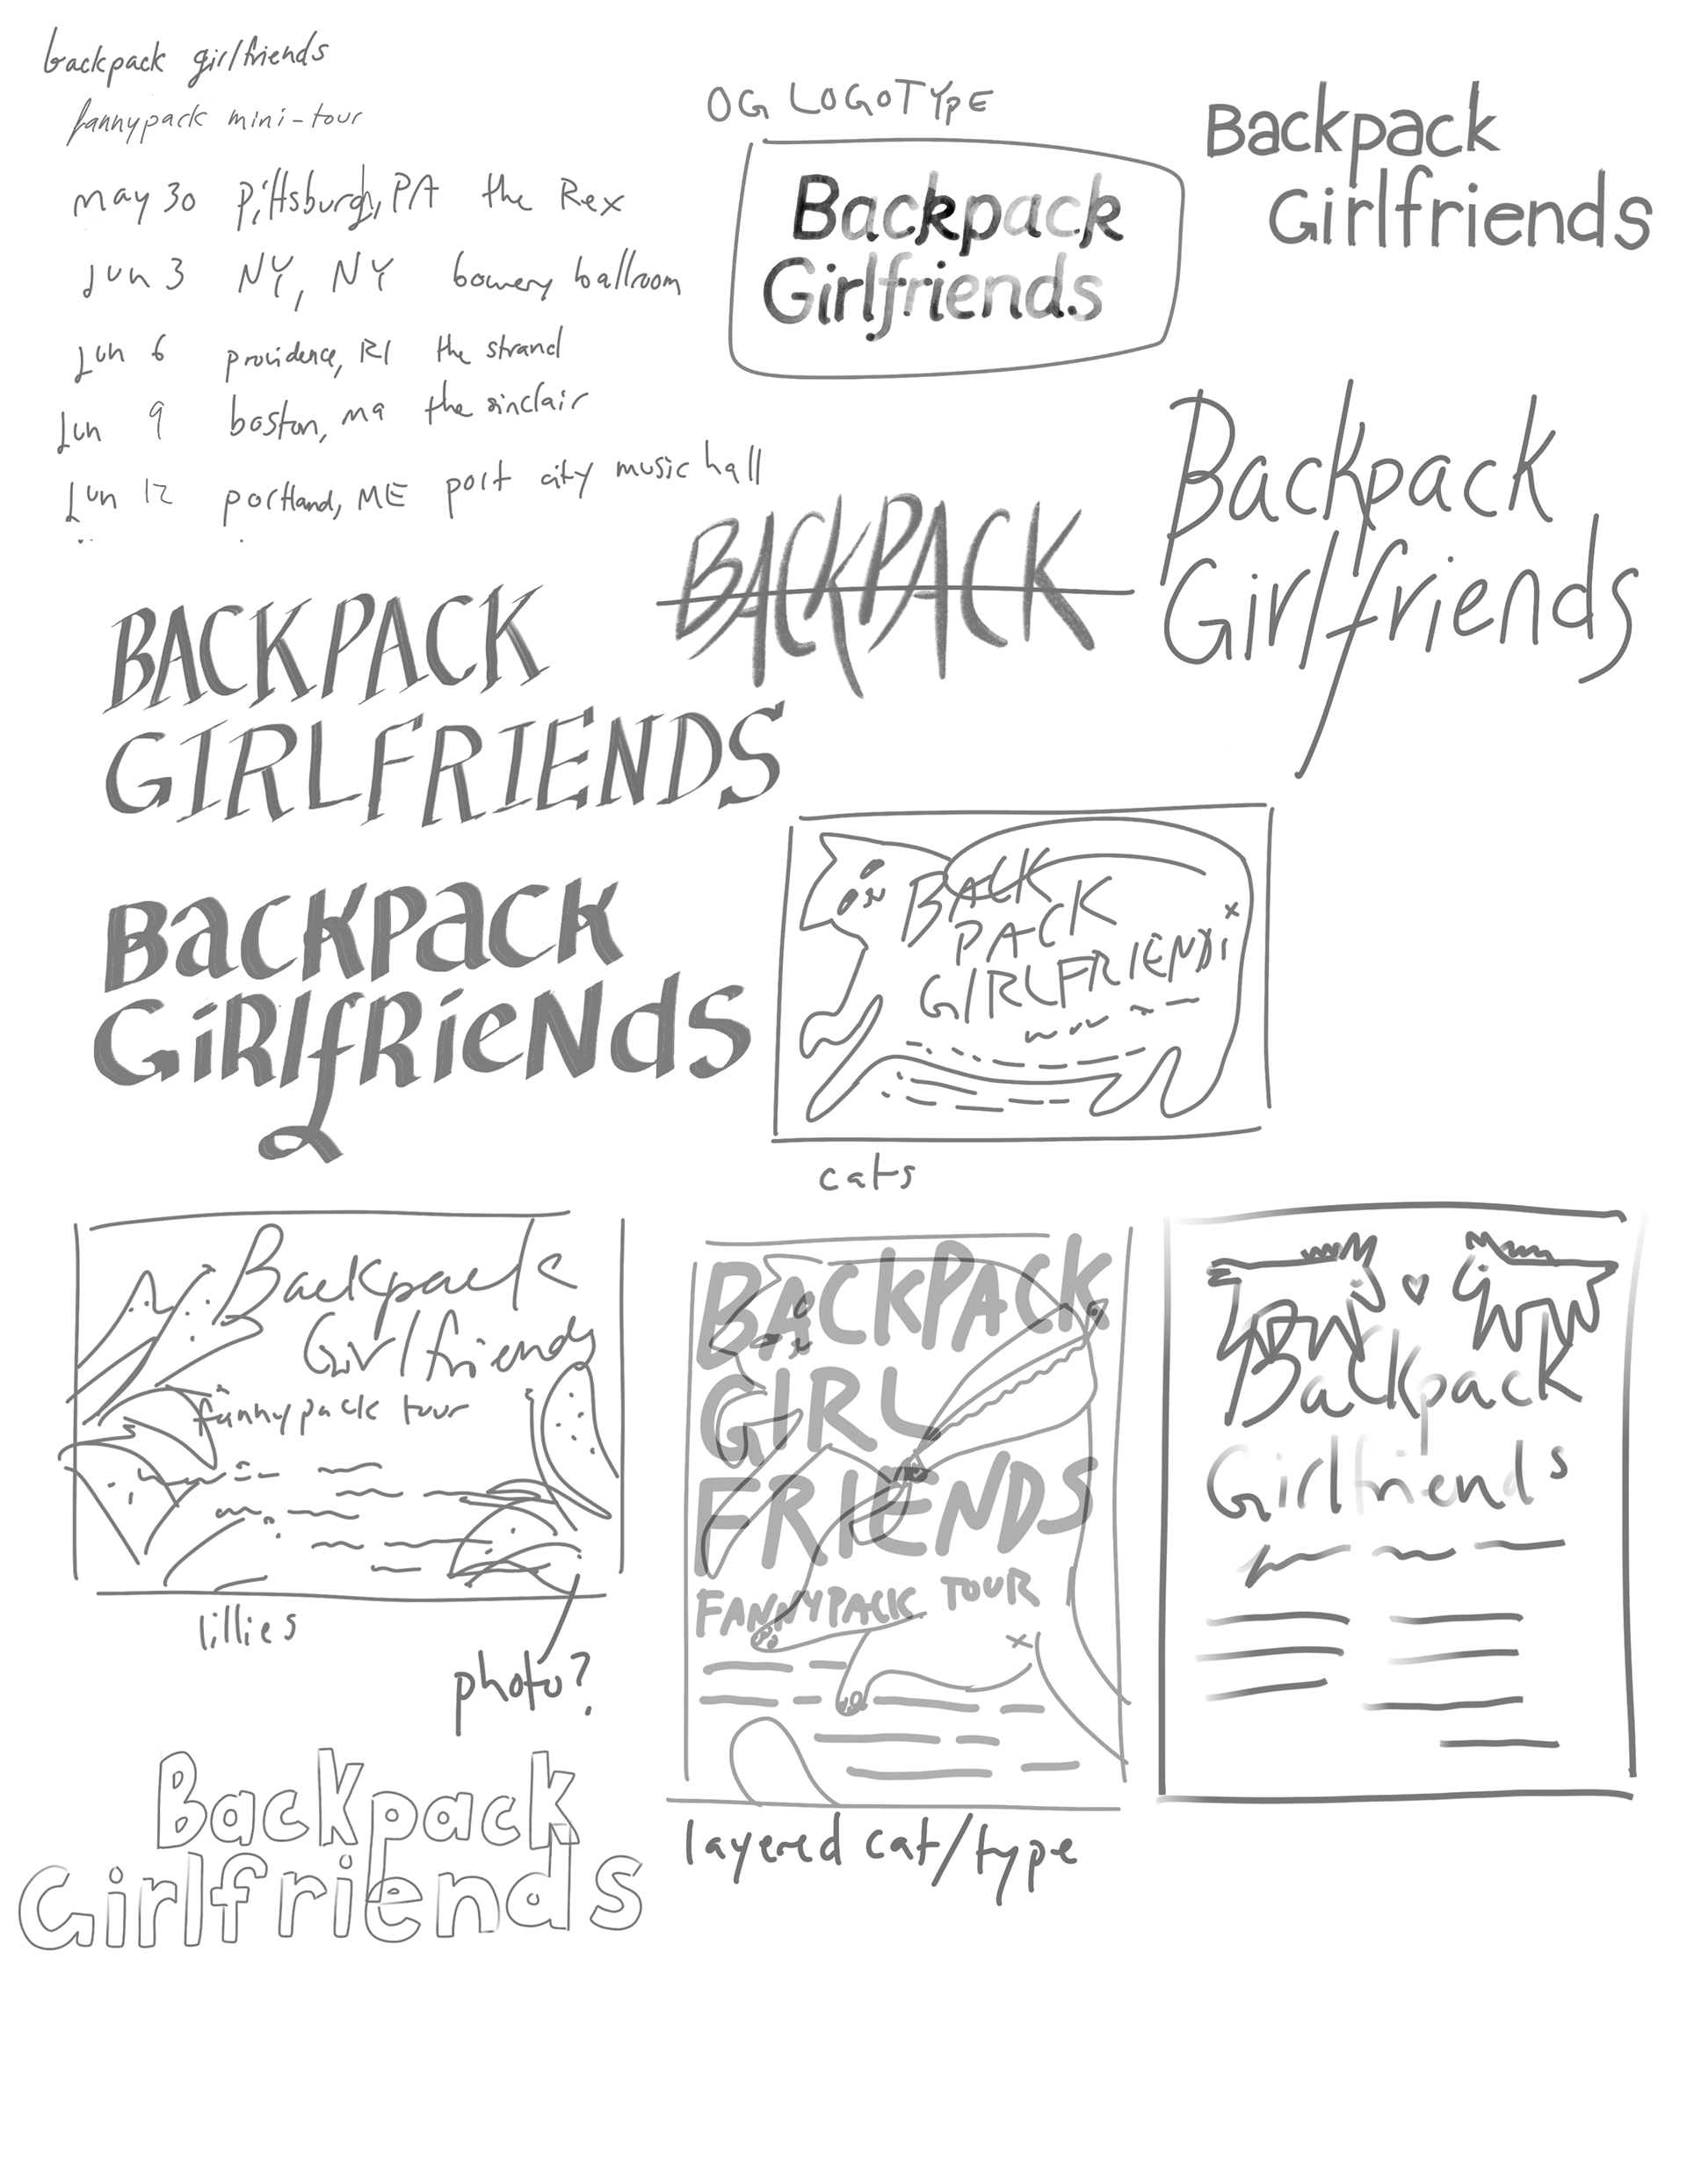 backpack girlfriends
fannypack mini-tour
may 30 Pittsburgh, PA the Rex
Jun 3 NY, NY bowery ballroom
Jun 6 providence, RI the strand
Jun 9 boston, ma the sinclair
Jun 12 portland, ME port city music hall
OG LOGOTYPE
Backpack
Girlfriends
Backpack
Girlfriends
BACKPACK
Backpack
Girlfriends
BACKPACK
GIRLFRIENDS
BacKPacK
GiRlfRieNdS
BACK
PACK
GIRLFRIENDS
cats
Backpack
Girlfriends
fannypack tour
lillies
photo?
BACKPACK
GIRL
FRIENDS
FANNYPACK TOUR
layered cat/type
Backpack
Girlfriends
Backpack
Girlfriends